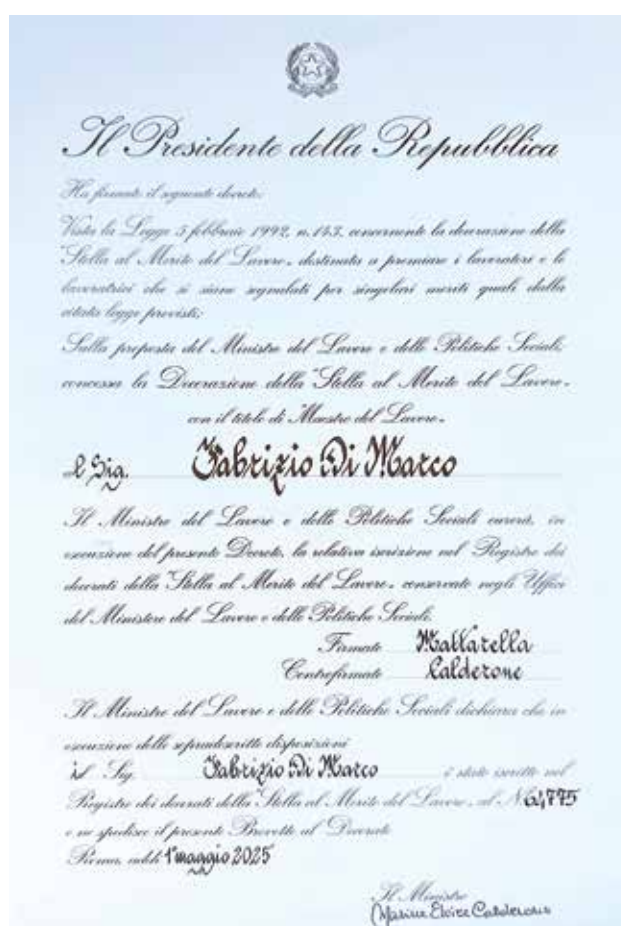 Il Presidente della Repubblica
Ha firmato il seguente decreto:
Vista la Legge 5 febbraio 1992, n. 143, concernente la decorazione della
"Stella al Merito del Lavoro" destinata a premiare i lavoratori e le
lavoratrici che si siano segnalati per singolari meriti quali dalla
citata legge previsti;
Sulla proposta del Ministro del Lavoro e delle Politiche Sociali;
concessa la Decorazione della "Stella al Merito del Lavoro"
con il titolo di "Maestro del Lavoro"
al Sig. Fabrizio Di Marco
Il Ministro del Lavoro e delle Politiche Sociali curerà, in
esecuzione del presente Decreto, la relativa iscrizione nel Registro dei
decorati della "Stella al Merito del Lavoro" conservato negli Uffici
del Ministero del Lavoro e delle Politiche Sociali.
Firmato Mattarella
Controfirmato Calderone
Il Ministro del Lavoro e delle Politiche Sociali dichiara che in
esecuzione delle sopradescritte disposizioni
il Sig. Fabrizio Di Marco è stato iscritto nel
Registro dei decorati della "Stella al Merito del Lavoro" al N.
e ne spedisce il presente Brevetto al Decorato
Roma, addì 1° maggio 2025
Il Ministro
Marina Elvira Calderone